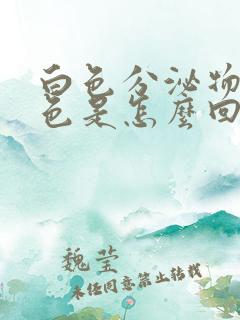 白色分泌物
色是怎麼回
魏莹
未经同意禁止转载